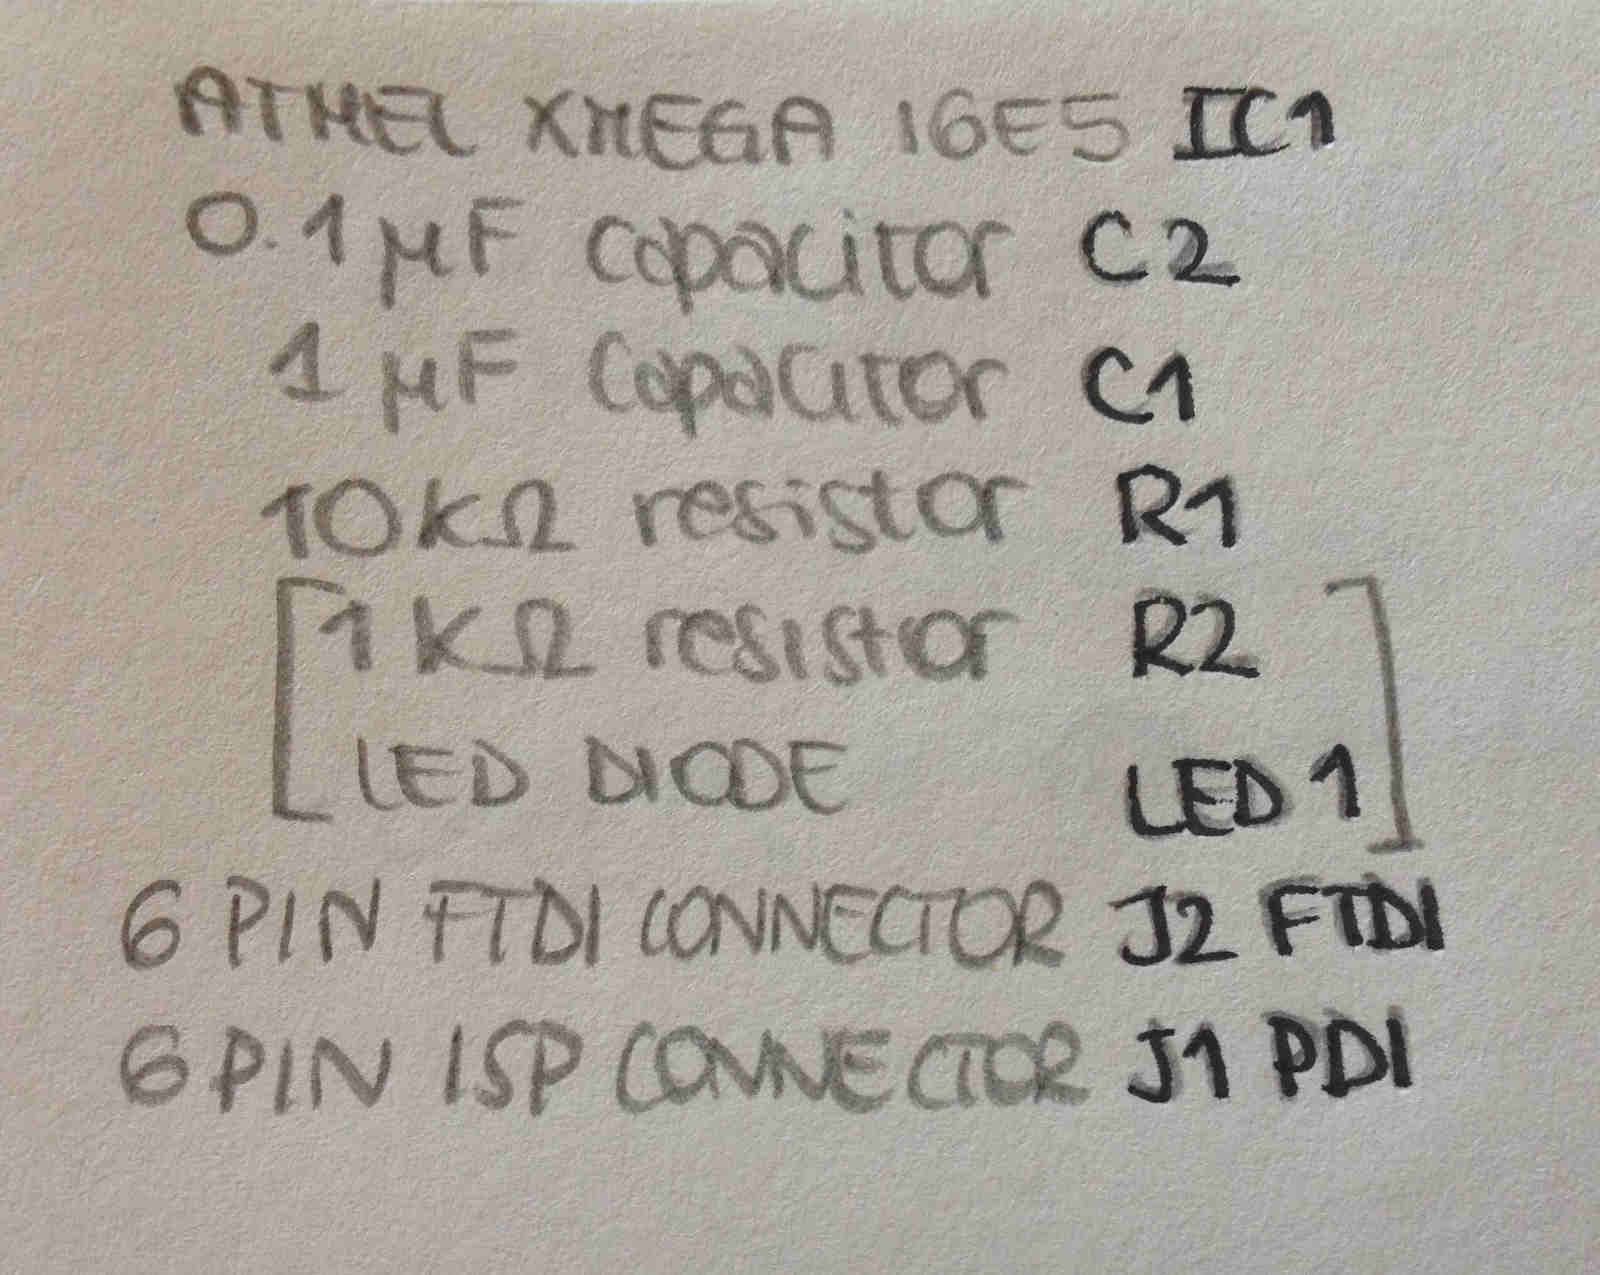 ATMEL XMEGA 16E5 IC1
0.1 µF capacitor C2
1 µF capacitor C1
10 kΩ resistor R1
[1 kΩ resistor R2
LED DIODE LED 1]
6 PIN FTDI CONNECTOR J2 FTDI
6 PIN ISP CONNECTOR J1 PDI